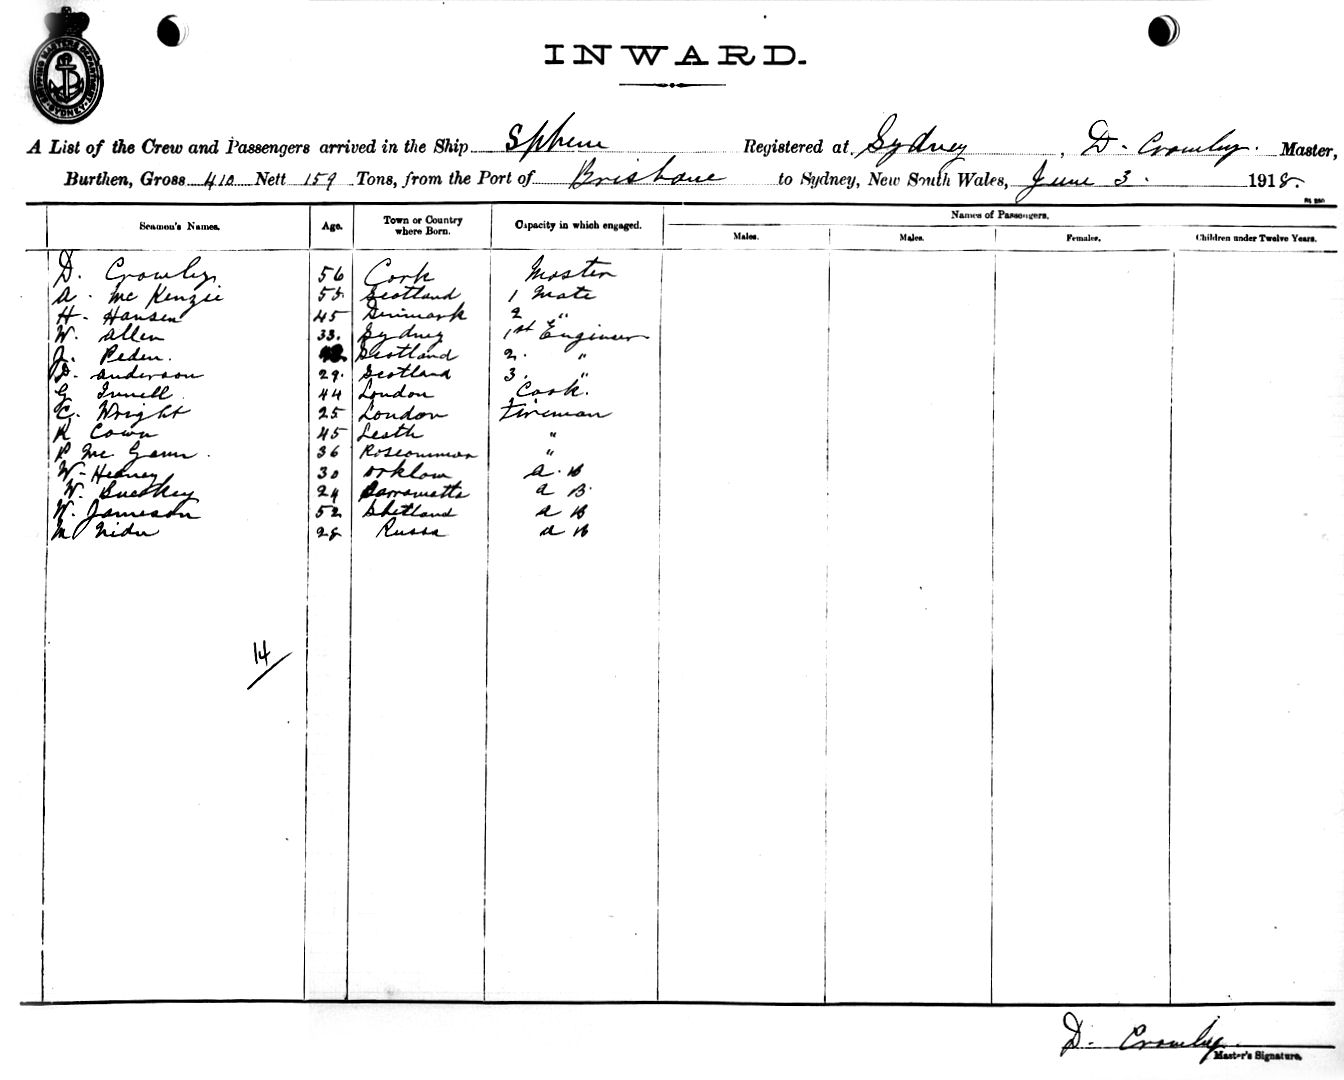 SHIPPING MASTERS DEPARTMENT SYDNEY
INWARD.
A List of the Crew and Passengers arrived in the Ship Sphene Registered at Sydney, D. Crowley. Master,
Burthen, Gross 410 Nett 159 Tons, from the Port of Brisbane to Sydney, New South Wales, June 3. 1918.
Seamen's Names. Age. Town or Country where Born. Capacity in which engaged. Names of Passengers.
Males. Males. Females. Children under Twelve Years.
D. Crowley 56 Cork Master
A. McKenzie 55 Scotland 1 Mate
H. Hansen 45 Denmark 2 "
W. Allen 33. Sydney 1st Engineer
J. Peden. Scotland 2. "
D. Anderson 29. Scotland 3. "
G 44 London Cook.
C. Wright 25 London Fireman
R Cown 45 Leith "
P McGann. 36 Roscommon "
W. Heaney 30 Arklow A. B
W. 24 Parramatta A B
W. Jameson 52 Shetland A B
M 28 Russa A B
14
D. Crowley.
Master's Signature.